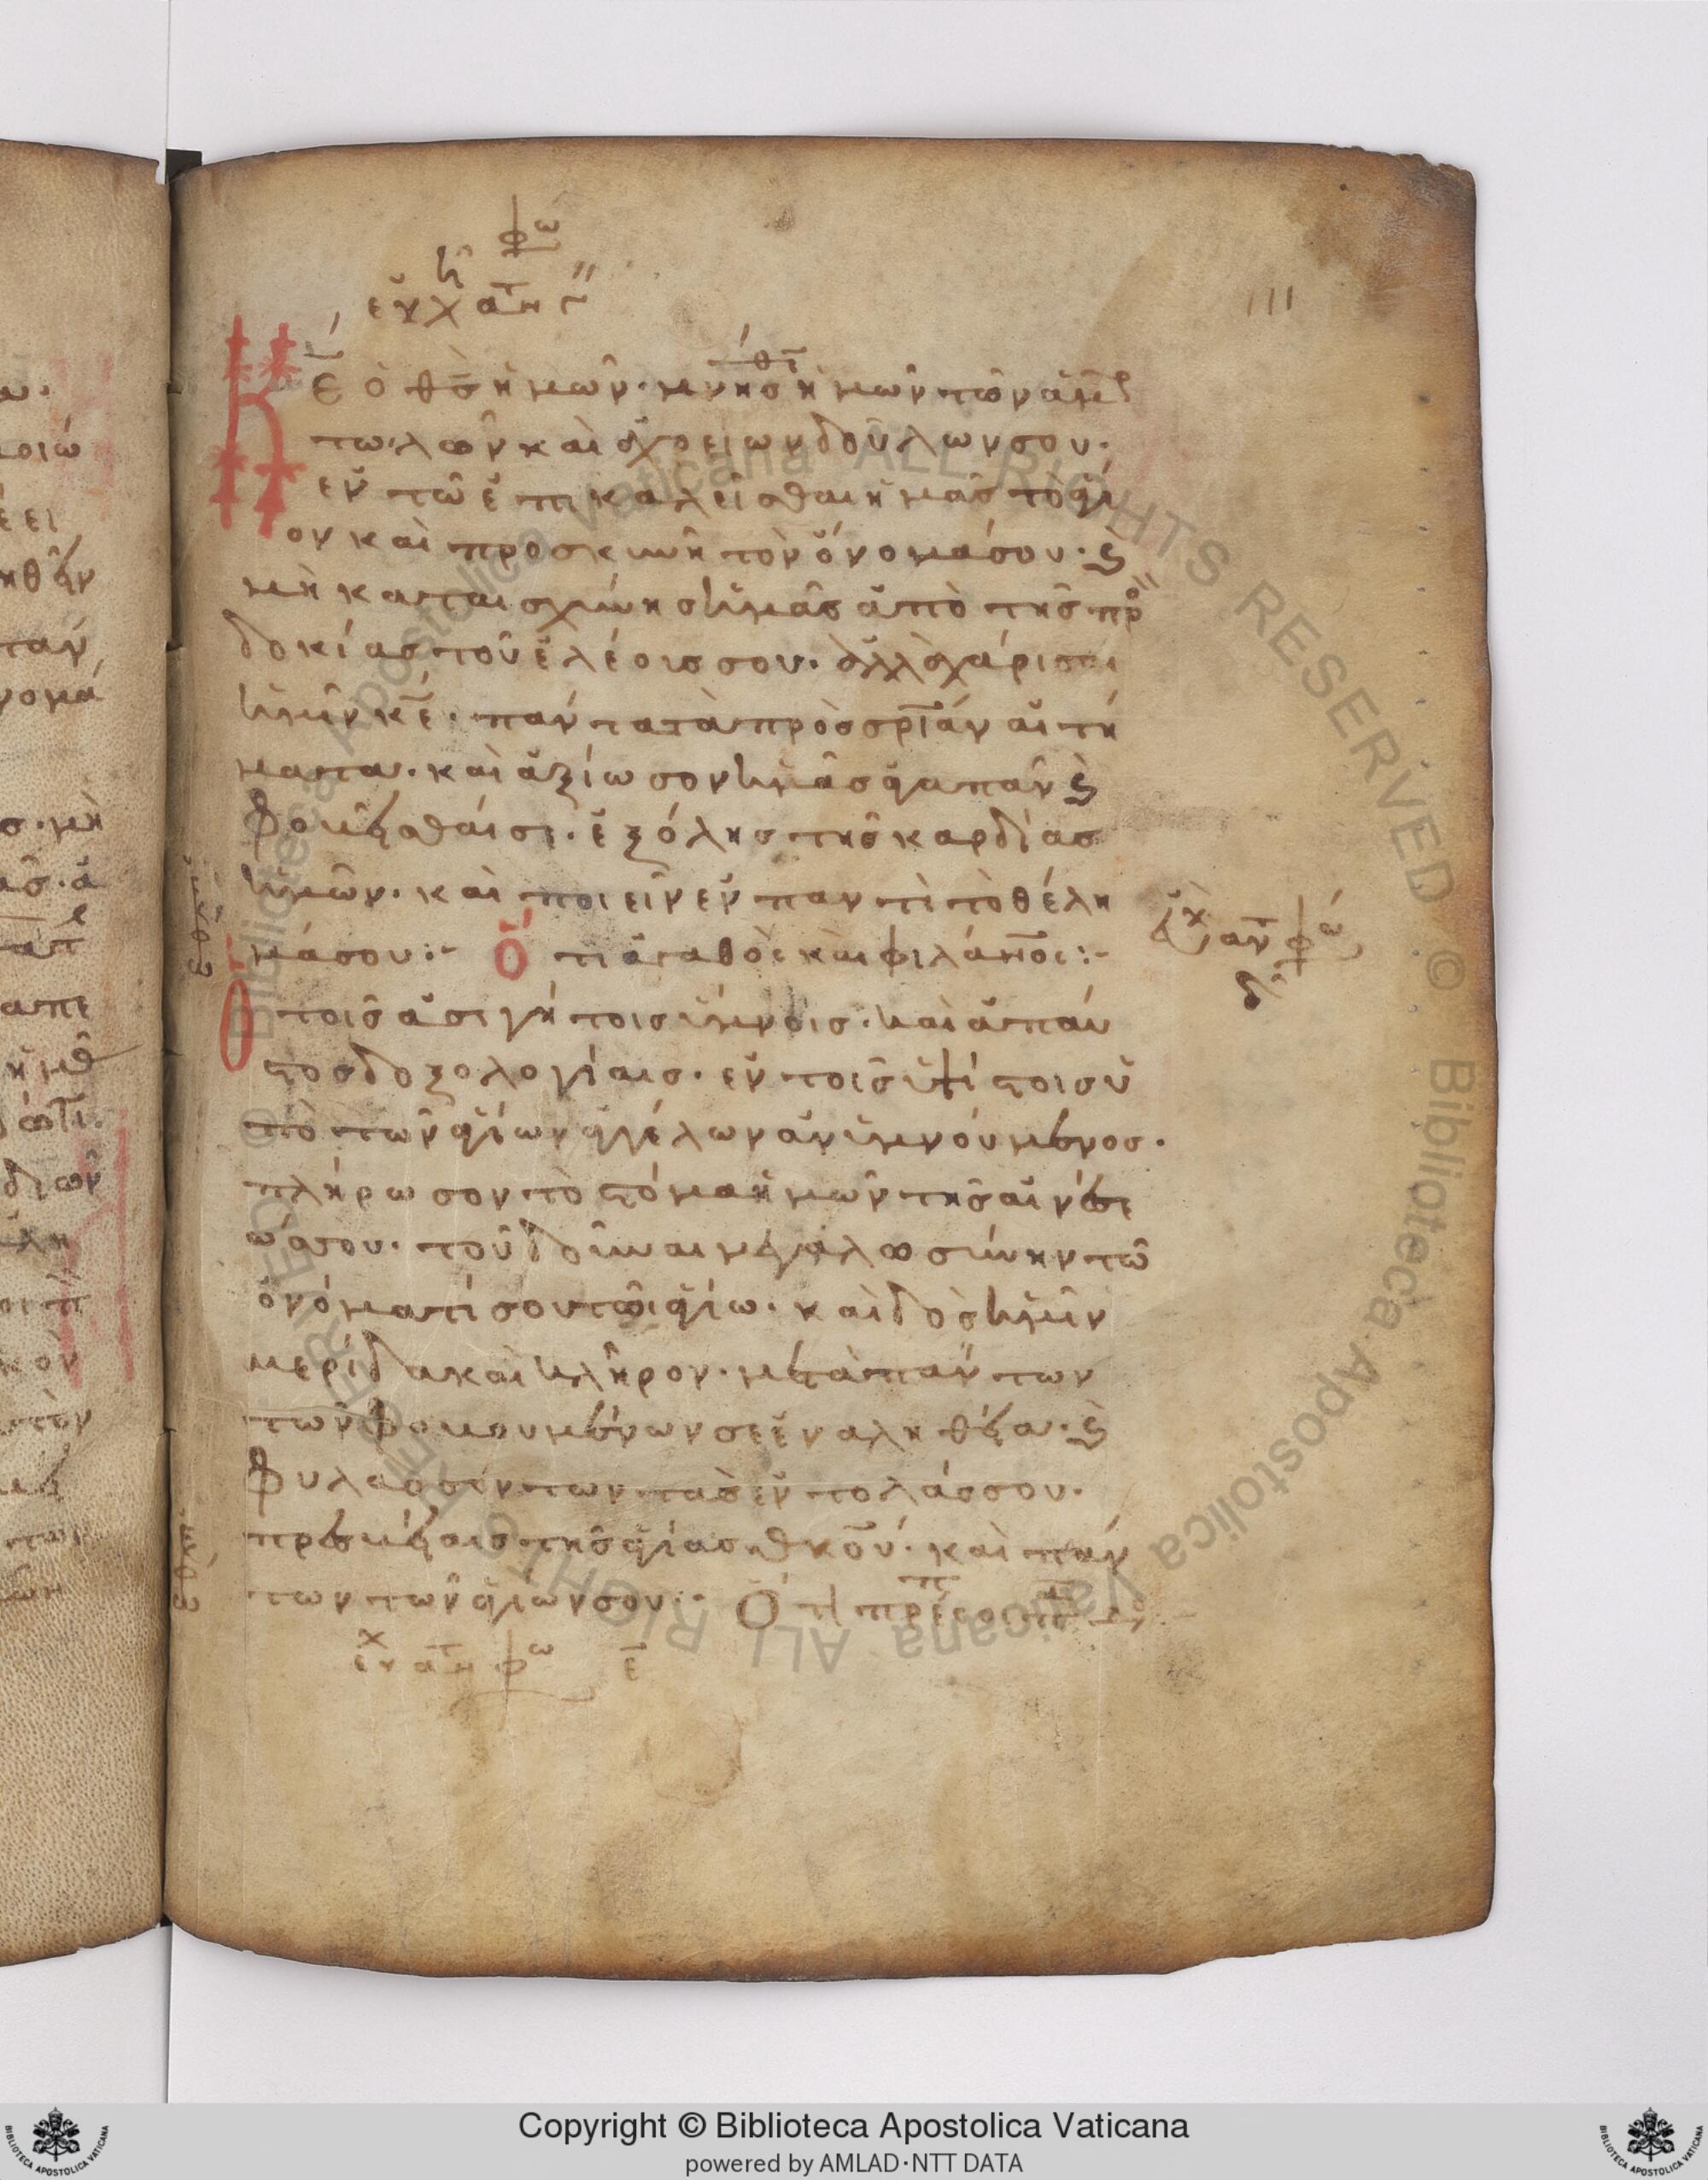 φω
εὐχὴ ἀντιφ γ
111
Κε ὁ θς ἡμῶν· μνήσθητι ἡμῶν τῶν ἁμρ
τωλῶν καὶ ἀχρείων δούλων σου·
ἐν τῶ ἐπικαλεῖσθαι ἡμᾶς τὸ ἅγι
ον καὶ προσκυνητὸν ὄνομά σου· καὶ
μὴ καταισχύνης ἡμᾶς ἀπὸ τῆς προσ
δοκίας τοῦ ἐλέους σου· ἀλλὰ χάρισαι
ἡμῖν κε· πάντα τὰ πρὸς σρίαν αἰτή
ματα· καὶ ἀξίωσον ἡμᾶς ἀγαπᾶν καὶ
φοβεῖσθαί σε· ἐξ ὅλης τῆς καρδίας
ἡμῶν· καὶ ποιεῖν ἐν παντὶ τὸ θέλη
μά σου:- Ὅτι ἀγαθὸς καὶ φιλάνος:-
εὐχ ἀντ φω
δ
Ὁ τοῖς ἀσιγήτοις ὕμνοις· καὶ ἀπαύ
στοις δοξολογίαις· ἐν τοῖς ὑψίστοις ὑ
πὸ τῶν ἁγίων ἀγγέλων ἀνυμνούμενος·
πλήρωσον τὸ στόμα ἡμῶν τῆς αἰνέσε
ώς σου· τοῦ δοῦναι μεγαλωσύνην τῶ
ὀνόματί σου τῶι ἁγίω· καὶ δὸς ἡμῖν
μερίδα καὶ κλῆρον· μετὰ πάντων
τῶν φοβουμένων σε ἐν ἀληθεία· καὶ
φυλασσόντων τὰς ἐντολάς σου·
πρεσβείαις τῆς ἁγίας θκου· καὶ πάν
των τῶν ἁγίων σου:- Ὅτι πρέπει σοι π
εὐχ ἀντιφ φω ε
Copyright © Biblioteca Apostolica Vaticana
powered by AMLAD·NTT DATA